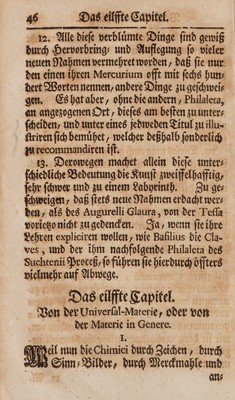 46 Das eilffte Capitel.
12. Alle diese verblümte Dinge sind gewiß
durch Hervorbring- und Auflegung so vieler
neuen Nahmen vermehret worden, daß sie nur
den einen ihren Mercurium offt mit sechs hun-
dert Worten nennen, andere Dinge zu geschwei-
gen. Es hat aber, ohne die andern, Philaleta,
an angezogenen Ort, dieses am besten zu unter-
scheiden, und unter eines jedweden Titul zu illu-
striren sich bemühet, welcher deßhalb sonderlich
zu recommandiren ist.
13. Derowegen machet allein diese unter-
schiedliche Bedeutung die Kunst zweiffelhafftig,
sehr schwer und zu einem Labyrinth. Zu ge-
schweigen, daß stets neue Nahmen erdacht wer-
den, als des Augurelli Glaura, von der Tessa
vorietzo nicht zu gedencken. Ja, wenn sie ihre
Lehren expliciren wollen, wie Basilius die Cla-
ves, und der ihm nachfolgende Philaleta des
Suchtenii Proceß, so führen sie hierdurch öffters
vielmehr auf Abwege.
Das eilffte Capitel.
Von der Universal-Materie, oder von
der Materie in Genere.
1.
Weil nun die Chimici durch Zeichen, durch
Sinn-Bilder, durch Merckmahle und
an-